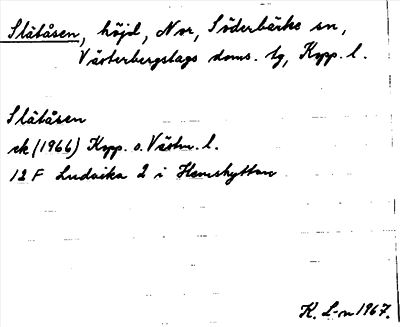 Slätåsen, höjd, Nor, Söderbärke sn,
Västerbergslags doms. tg, Kopp. l.
Slätåsen
ek (1966) Kopp. o. Västm. l.
12 F Ludvika 2 i Hemshyttan
K. L-n 1967.